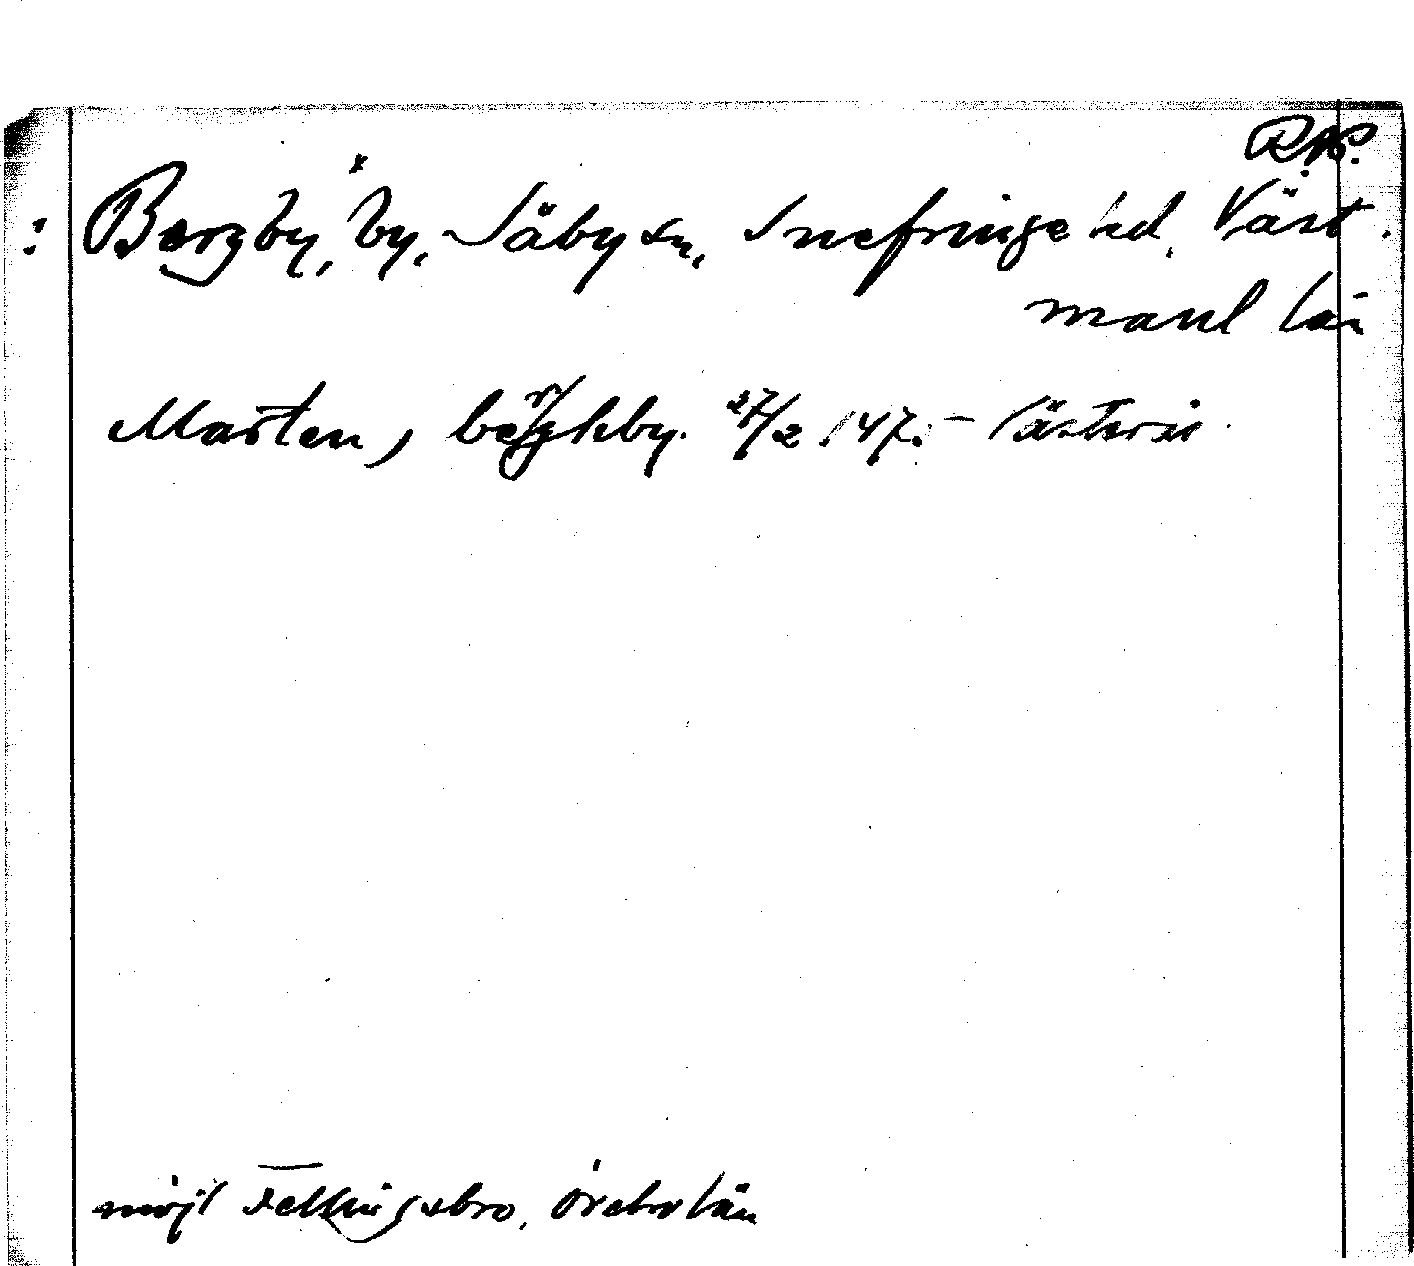 RAP.
: Bergby, by, Säby sn, Snefringe hd, Väst.
manl län
Marten, berghby. 27/2 147. - Västerås
möjl Fellingsbro, Örebro län